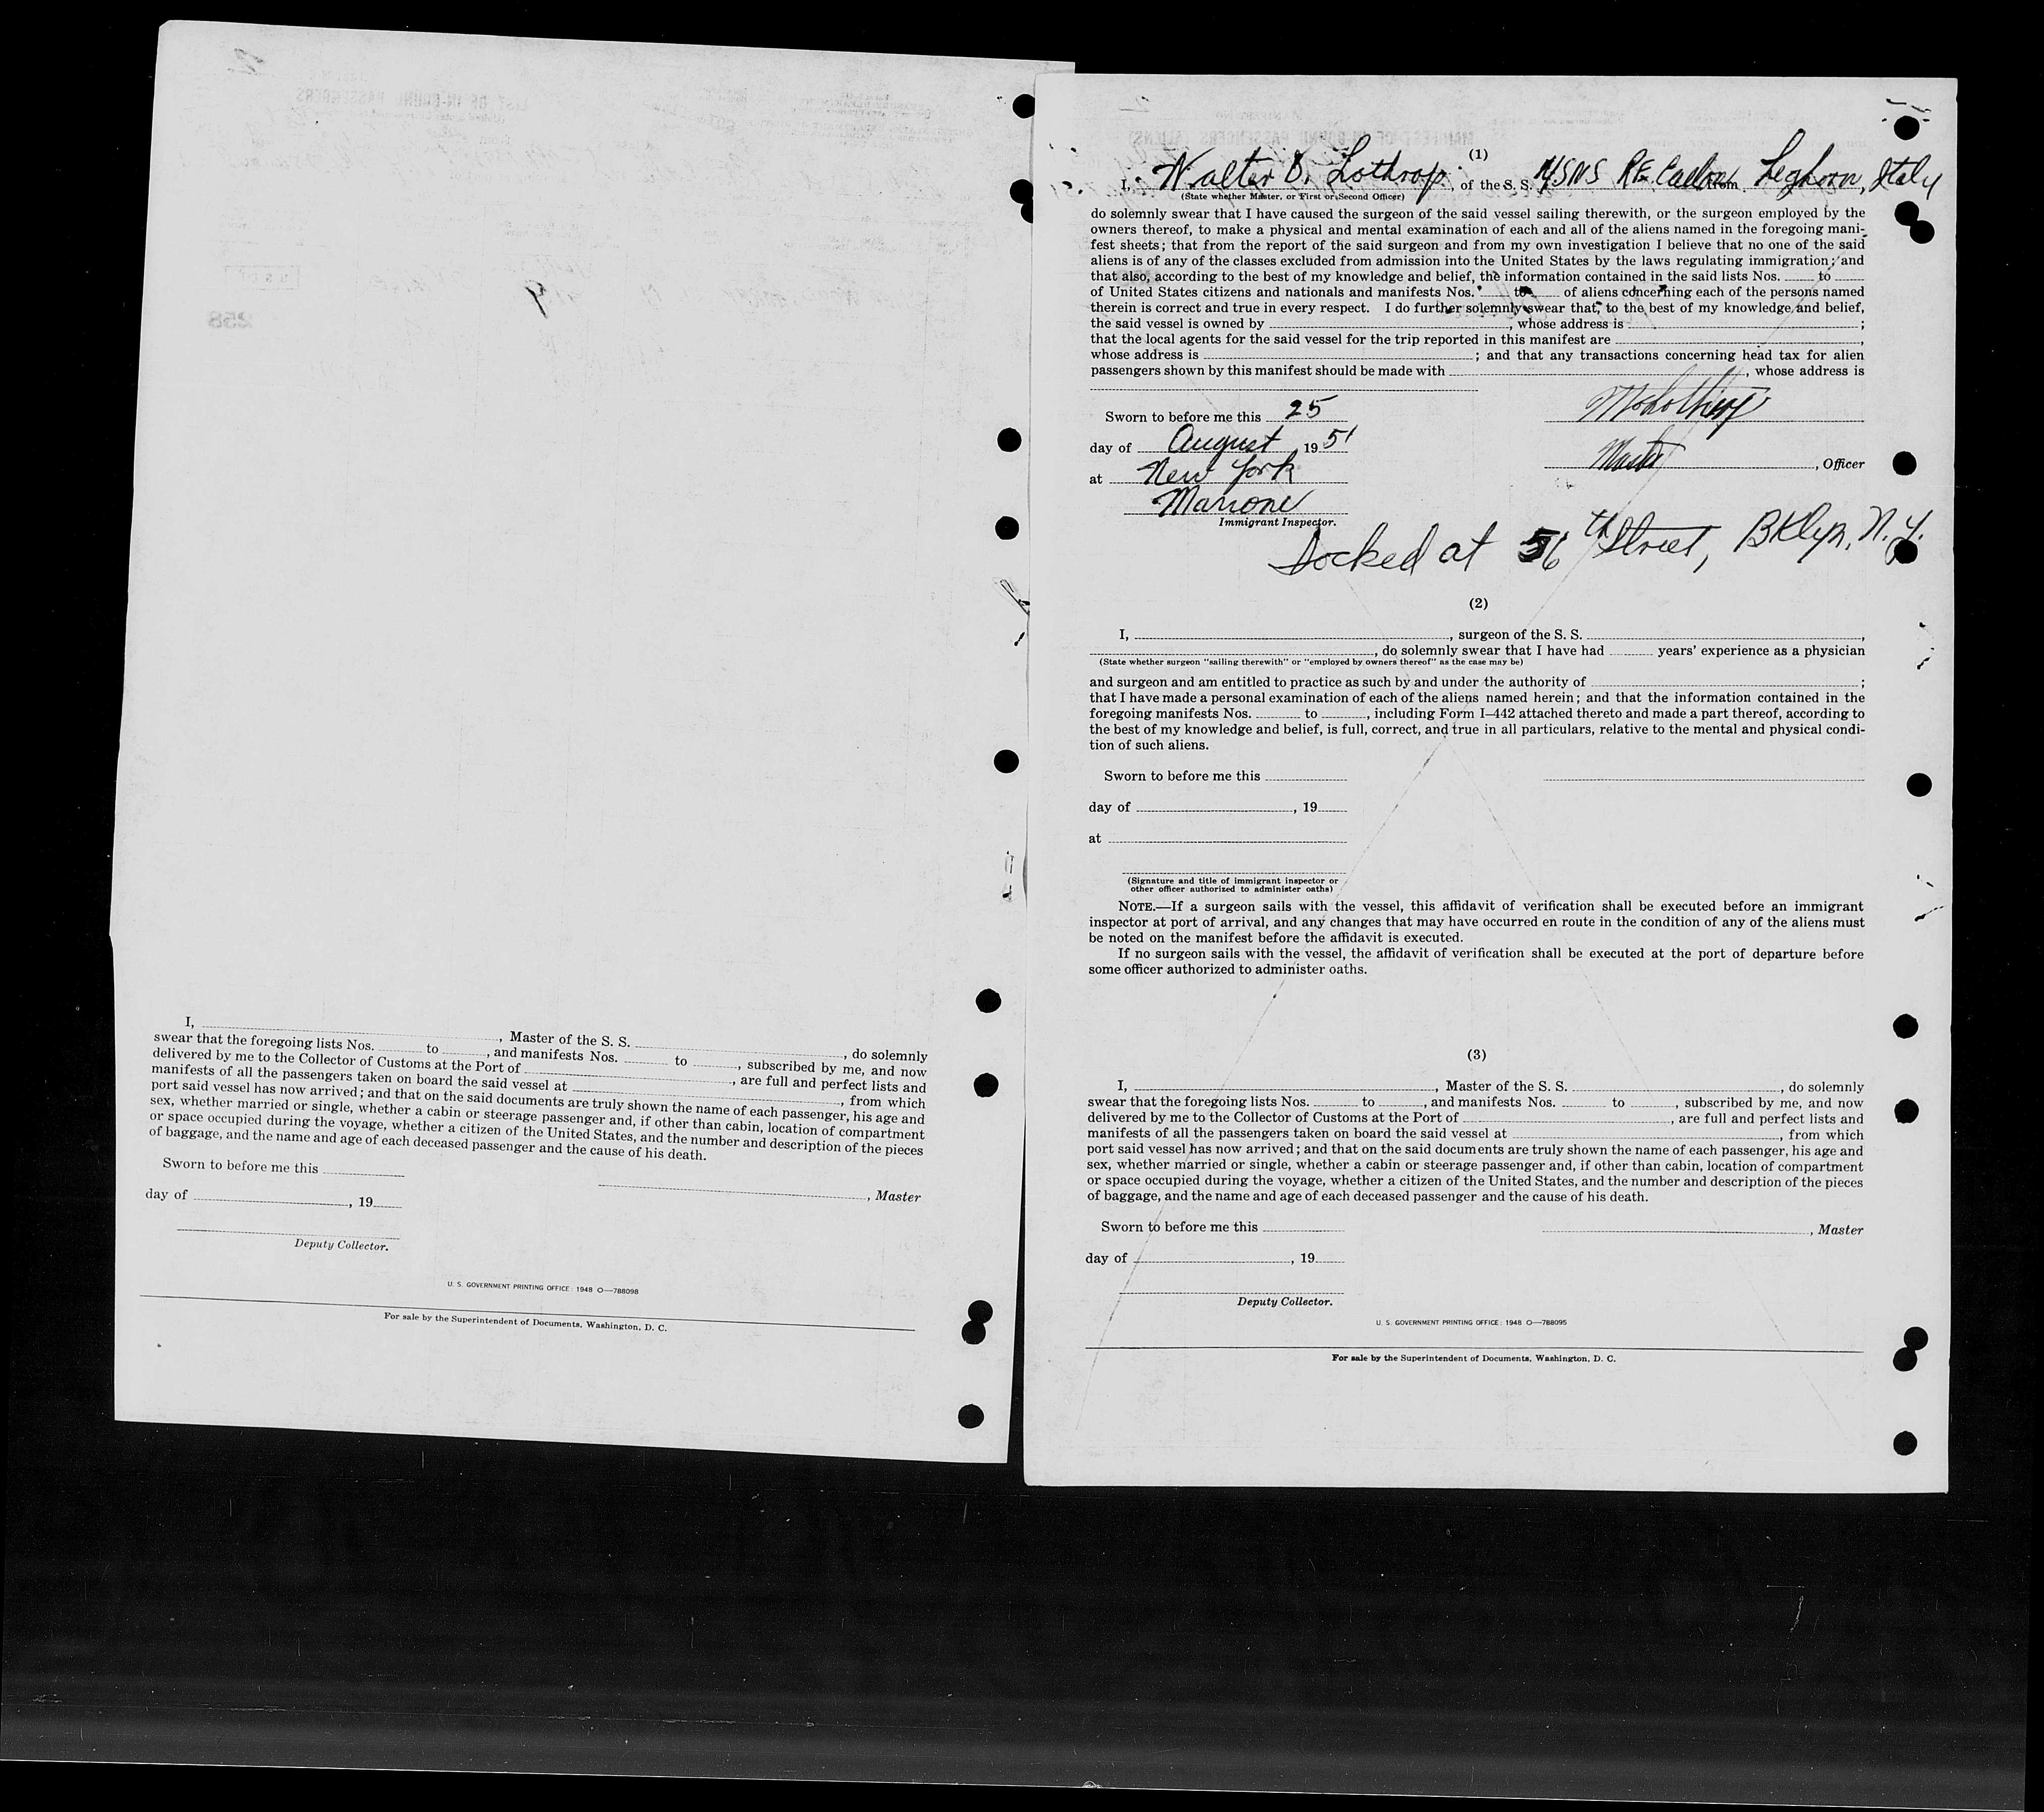 I, , Master of the S. S. , do solemnly
swear that the foregoing lists Nos. to , and manifests Nos. to , subscribed by me, and now
delivered by me to the Collector of Customs at the Port of , are full and perfect lists and
manifests of all the passengers taken on board the said vessel at , from which
port said vessel has now arrived; and that on the said documents are truly shown the name of each passenger, his age and
sex, whether married or single, whether a cabin or steerage passenger and, if other than cabin, location of compartment
or space occupied during the voyage, whether a citizen of the United States, and the number and description of the pieces
of baggage, and the name and age of each deceased passenger and the cause of his death.
Sworn to before me this
, Master
day of , 19
Deputy Collector.
U. S. GOVERNMENT PRINTING OFFICE: 1948 O—788098
For sale by the Superintendent of Documents, Washington, D. C.
(1)
I, Walter D. Lothrop, of the S. S. USNS R.E. Callan from Leghorn, Italy
(State whether Master, or First or Second Officer)
do solemnly swear that I have caused the surgeon of the said vessel sailing therewith, or the surgeon employed by the
owners thereof, to make a physical and mental examination of each and all of the aliens named in the foregoing mani-
fest sheets; that from the report of the said surgeon and from my own investigation I believe that no one of the said
aliens is of any of the classes excluded from admission into the United States by the laws regulating immigration; and
that also, according to the best of my knowledge and belief, the information contained in the said lists Nos. to
of United States citizens and nationals and manifests Nos. to of aliens concerning each of the persons named
therein is correct and true in every respect. I do further solemnly swear that, to the best of my knowledge and belief,
the said vessel is owned by , whose address is ;
that the local agents for the said vessel for the trip reported in this manifest are ,
whose address is ; and that any transactions concerning head tax for alien
passengers shown by this manifest should be made with , whose address is
Sworn to before me this 25
WD Lothrop
day of August 1951
Master, Officer
at New York
Marrone
Immigrant Inspector.
Docked at 56th Street, Bklyn, N.Y.
(2)
I, , surgeon of the S. S. ,
, do solemnly swear that I have had years' experience as a physician
(State whether surgeon "sailing therewith" or "employed by owners thereof" as the case may be)
and surgeon and am entitled to practice as such by and under the authority of ;
that I have made a personal examination of each of the aliens named herein; and that the information contained in the
foregoing manifests Nos. to , including Form I–442 attached thereto and made a part thereof, according to
the best of my knowledge and belief, is full, correct, and true in all particulars, relative to the mental and physical condi-
tion of such aliens.
Sworn to before me this
day of , 19
at
(Signature and title of immigrant inspector or
other officer authorized to administer oaths)
NOTE.—If a surgeon sails with the vessel, this affidavit of verification shall be executed before an immigrant
inspector at port of arrival, and any changes that may have occurred en route in the condition of any of the aliens must
be noted on the manifest before the affidavit is executed.
If no surgeon sails with the vessel, the affidavit of verification shall be executed at the port of departure before
some officer authorized to administer oaths.
(3)
I, , Master of the S. S. , do solemnly
swear that the foregoing lists Nos. to , and manifests Nos. to , subscribed by me, and now
delivered by me to the Collector of Customs at the Port of , are full and perfect lists and
manifests of all the passengers taken on board the said vessel at , from which
port said vessel has now arrived; and that on the said documents are truly shown the name of each passenger, his age and
sex, whether married or single, whether a cabin or steerage passenger and, if other than cabin, location of compartment
or space occupied during the voyage, whether a citizen of the United States, and the number and description of the pieces
of baggage, and the name and age of each deceased passenger and the cause of his death.
Sworn to before me this
, Master
day of , 19
Deputy Collector.
U. S. GOVERNMENT PRINTING OFFICE: 1948 O—788095
For sale by the Superintendent of Documents, Washington, D. C.